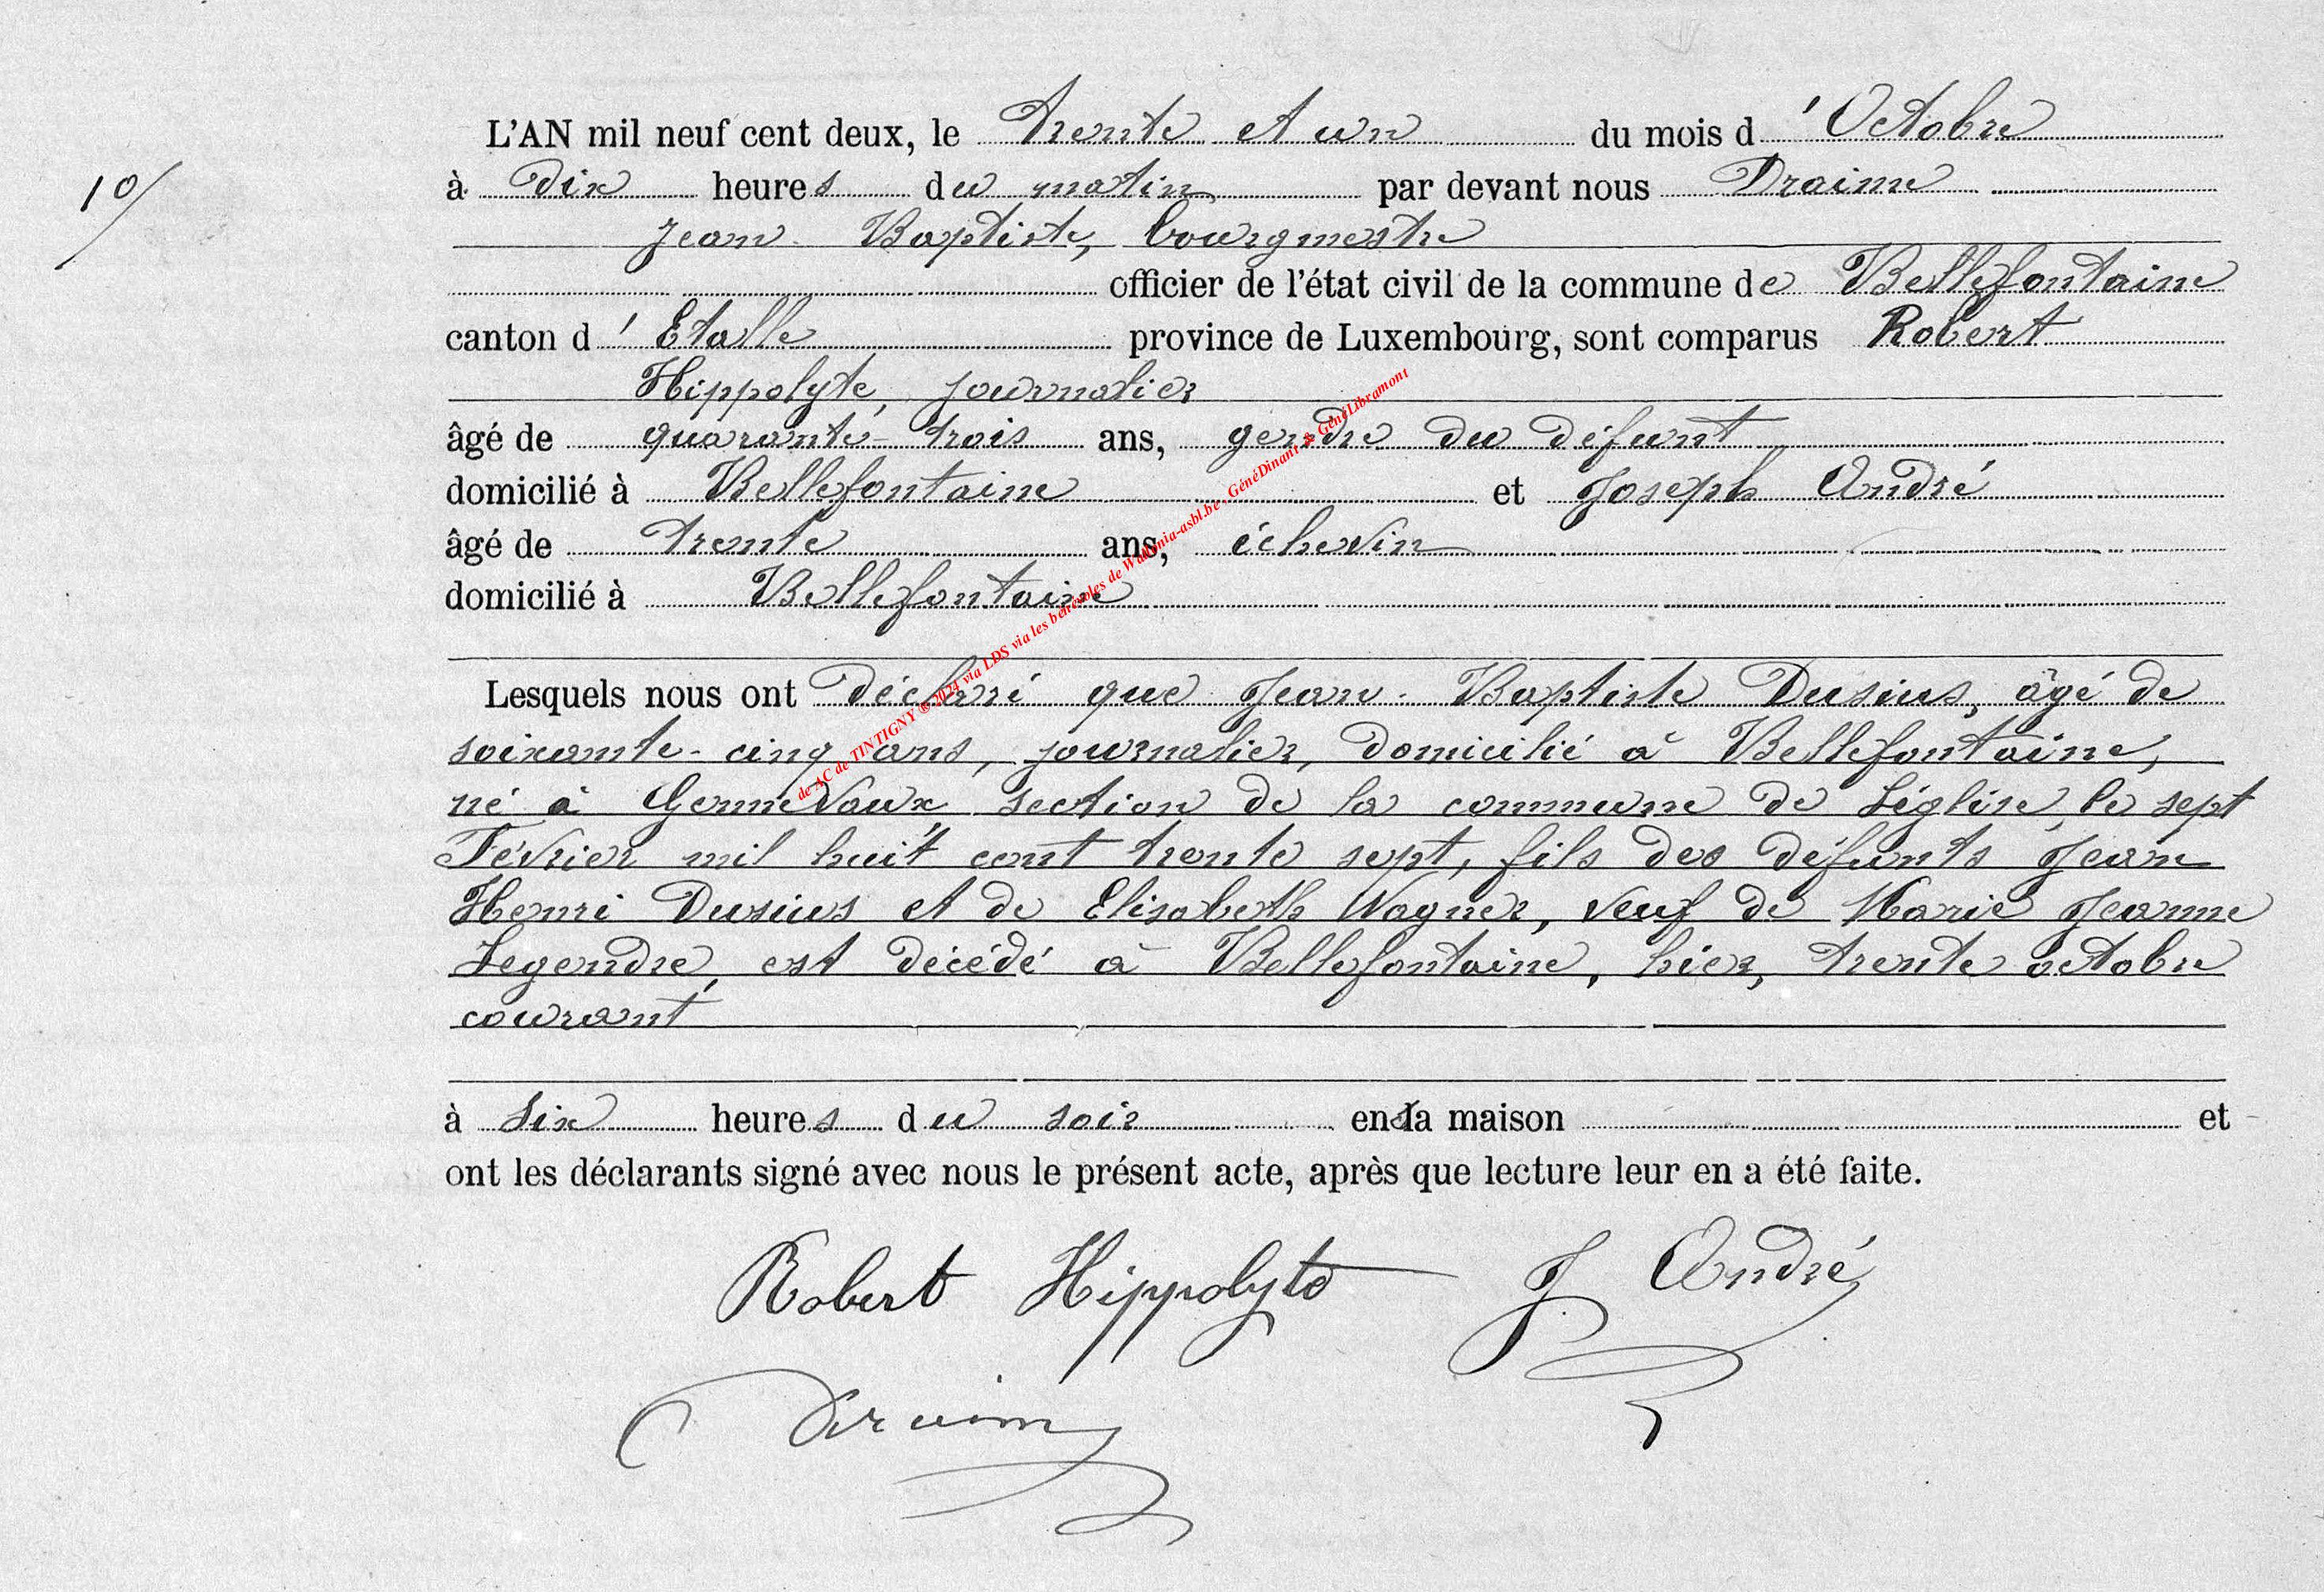 L'AN mil neuf cent deux, le trente et un du mois d'Octobre
10/
à dix heures du matin par devant nous Draime
Jean Baptiste, bourgmestre
officier de l'état civil de la commune de Bellefontaine
canton d'Etalle province de Luxembourg, sont comparus Robert
Hippolyte, journalier
âgé de quarante-trois ans, gendre du défunt
domicilié à Bellefontaine et Joseph André
âgé de trente ans, échevin
domicilié à Bellefontaine
Lesquels nous ont déclaré que Jean-Baptiste Dusius, âgé de
soixante-cinq ans, journalier, domicilié à Bellefontaine,
né à Gennevaux section de la commune de Léglise, le sept
Février mil huit cent trente sept, fils des défunts Jean
Henri Dusius et de Elisabeth Wagner, veuf de Marie Jeanne
Legendre, est décédé à Bellefontaine, hier, trente octobre
courant
à six heures du soir en sa maison et
ont les déclarants signé avec nous le présent acte, après que lecture leur en a été faite.
Robert Hippolyte J André
Draime
de AC de TINTIGNY ® 2024 via LDS via les bénévoles de Wallonia-asbl.be . GénéDinant & GénéLibramont